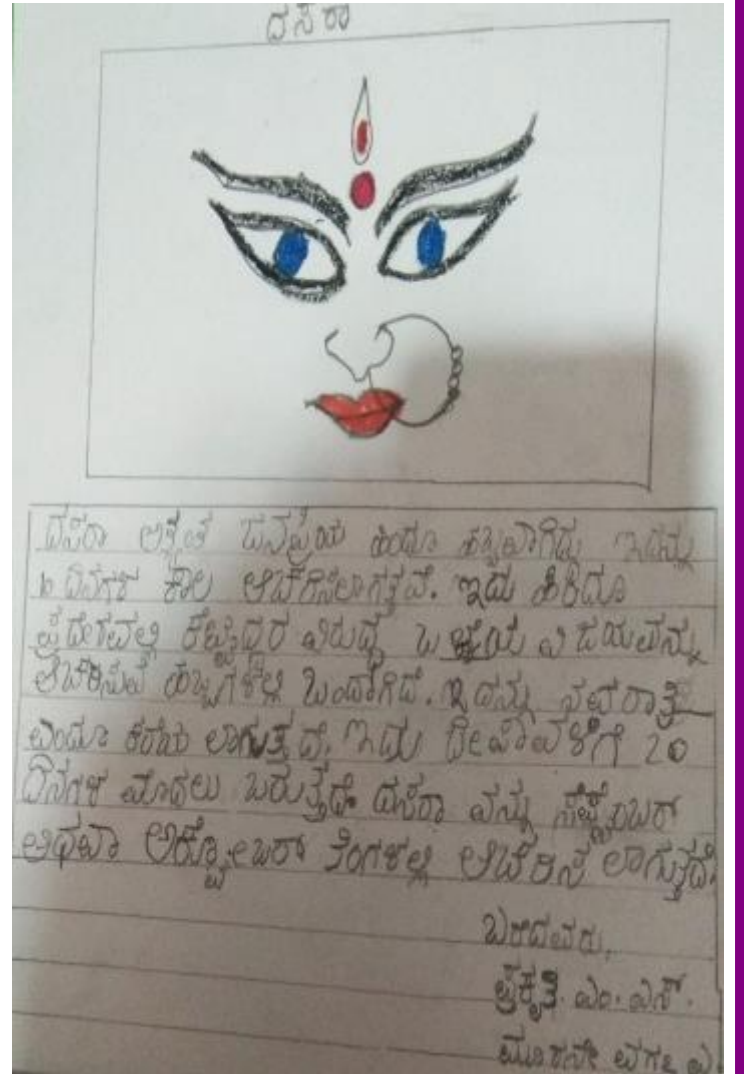 ದಸರಾ
ದಸರಾ ಅತ್ಯಂತ ಜನಪ್ರಿಯ ಹಿಂದೂ ಹಬ್ಬವಾಗಿದ್ದು ಇದನ್ನು
೬ ದಿನಗಳ ಕಾಲ ಆಚರಿಸಲಾಗುತ್ತವೆ. ಇದು
ಪ್ರದೇಶವಲ್ಲಿ ಕೆಟ್ಟದ್ದರ ವಿರುದ್ಧ ಒಳ್ಳೆಯ ವಿಜಯವನ್ನು
ಆಚರಿಸುವ ಹಬ್ಬಗಳಲ್ಲಿ ಒಂದಾಗಿದೆ. ಇದನ್ನು ನವರಾತ್ರಿ
ಎಂದೂ ಕರೆಯ ಲಾಗುತ್ತದೆ. ಇದು ದೀಪಾವಳಿಗೆ 20
ದಿನಗಳ ಮೊದಲು ಬರುತ್ತದೆ ದಸರಾ ವನ್ನು ಸೆಪ್ಟೆಂಬರ್
ಅಥವಾ ಅಕ್ಟೋಬರ್ ತಿಂಗಳಲ್ಲಿ ಆಚರಿಸ ಲಾಗುತ್ತದೆ.
ಬರೆದವರು,
ಪ್ರಕೃತಿ. ಎಂ. ಎಸ್.
ಮೂರನೇ ವರ್ಗ ಎ.